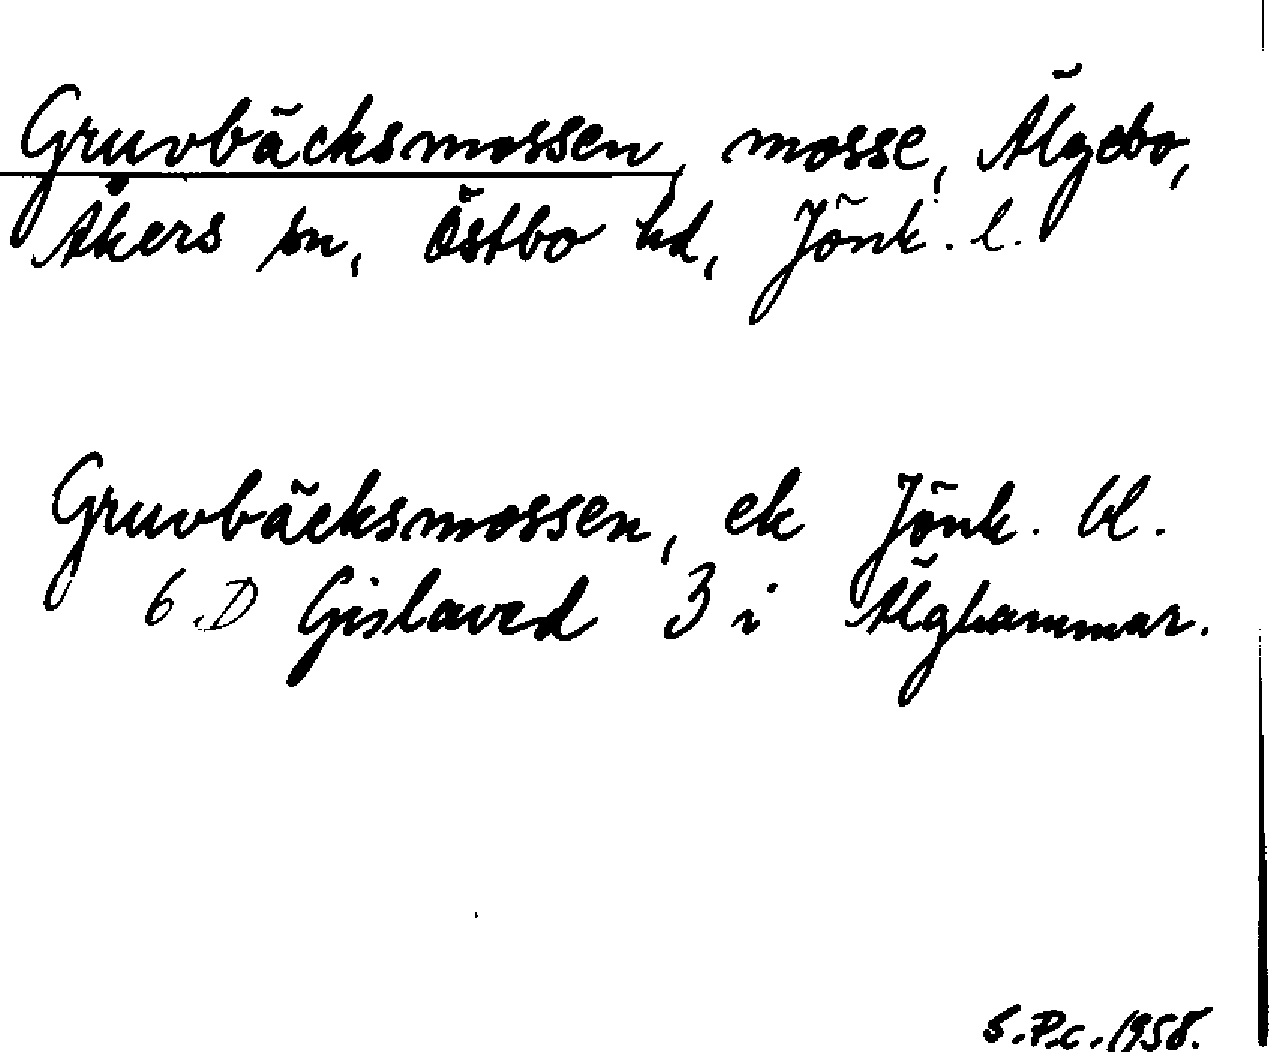 Gruvbäcksmossen, mosse, Älgebo,
Åkers sn, Östbo hd, Jönk. l.
Gruvbäcksmossen, ek Jönk. bl.
6 D Gislaved 3 i Älghammar.
S.P.c. 1958.